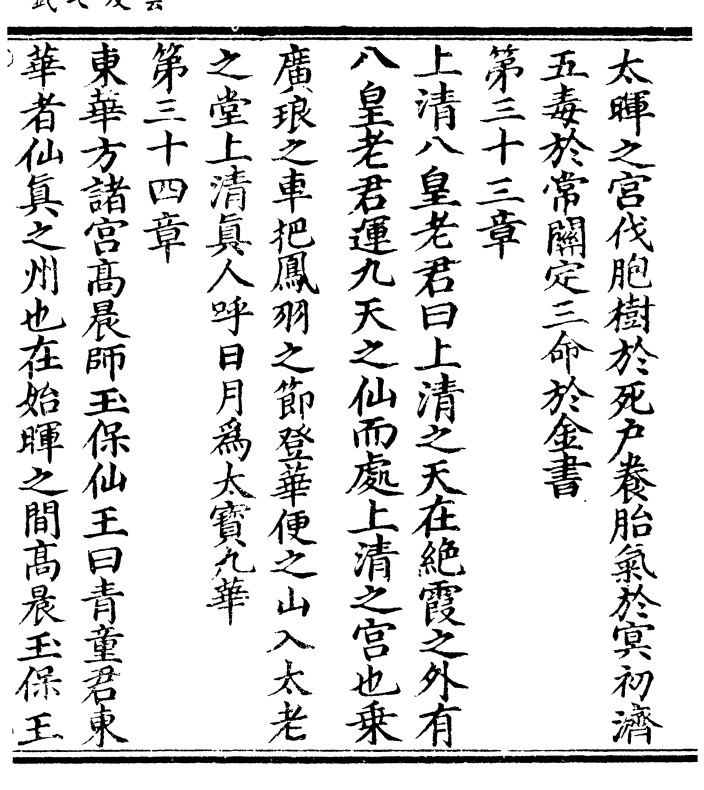 太暉之宮伐胞樹於死户養胎氣於冥初濟
五毒於常關定三命於金書
第三十三章
上清八皇老君曰上清之天在絶霞之外有
八皇老君運九天之仙而處上清之宮也乗
廣琅之車把鳳羽之節登華便之山入太老
之堂上清眞人呼日月爲太寳九華
第三十四章
東華方諸宮髙晨師玉保仙王曰青童君東
華者仙眞之州也在始暉之間髙晨玉保王